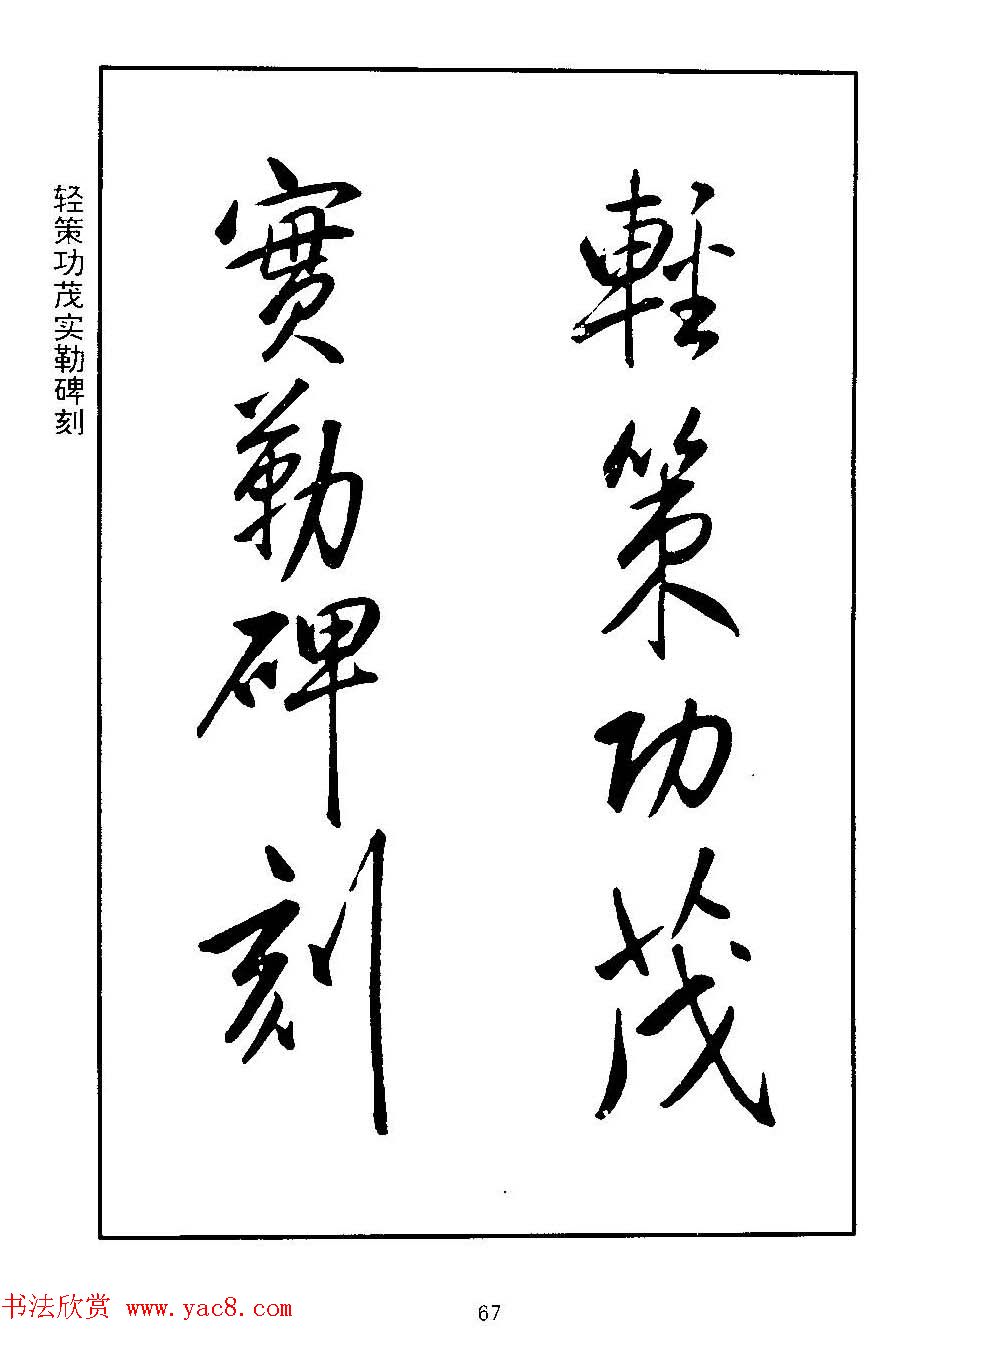 輕策功茂
實勒碑刻
轻策功茂实勒碑刻
书法欣赏 www.yac8.com
67